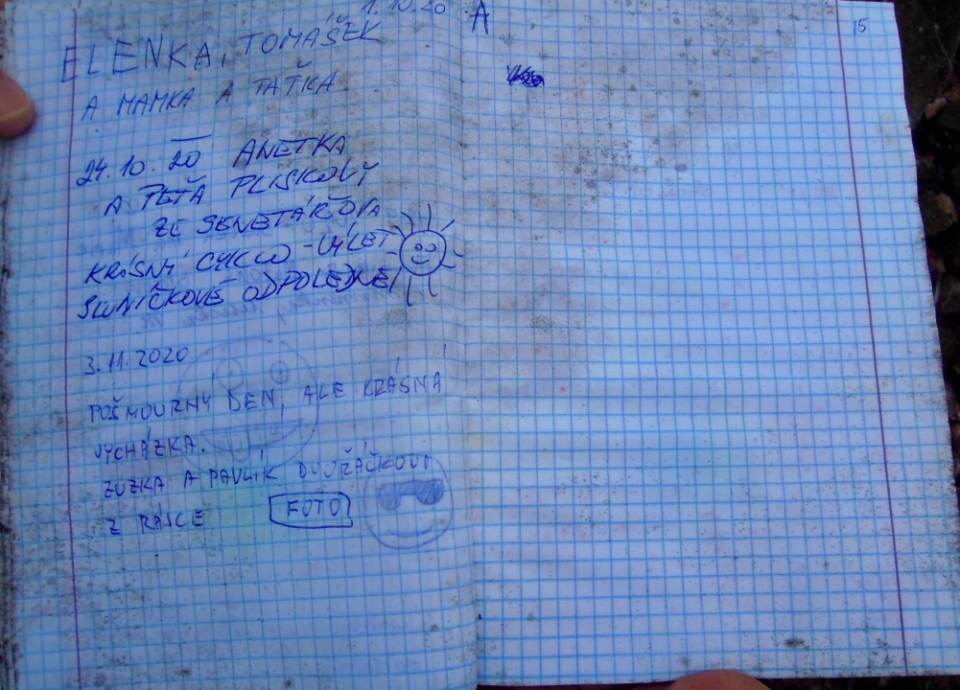 1.10.20
A
15
ELENKA, TOMAŠEK
A MAMKA A TAŤKA
24.10.20 ANETKA
A PÉŤA PLISKOVÝ
ZE SENETÁŘOVA
KRÁSNÝ CYKLO-VÝLET
SLUNÍČKOVÉ ODPOLEDNE
3.11.2020
POŠMOURNÝ DEN, ALE KRÁSNÁ
VYCHÁZKA.
ZUZKA A PAVLÍK DVOŘÁČKOVI
Z RÁJCE FOTO